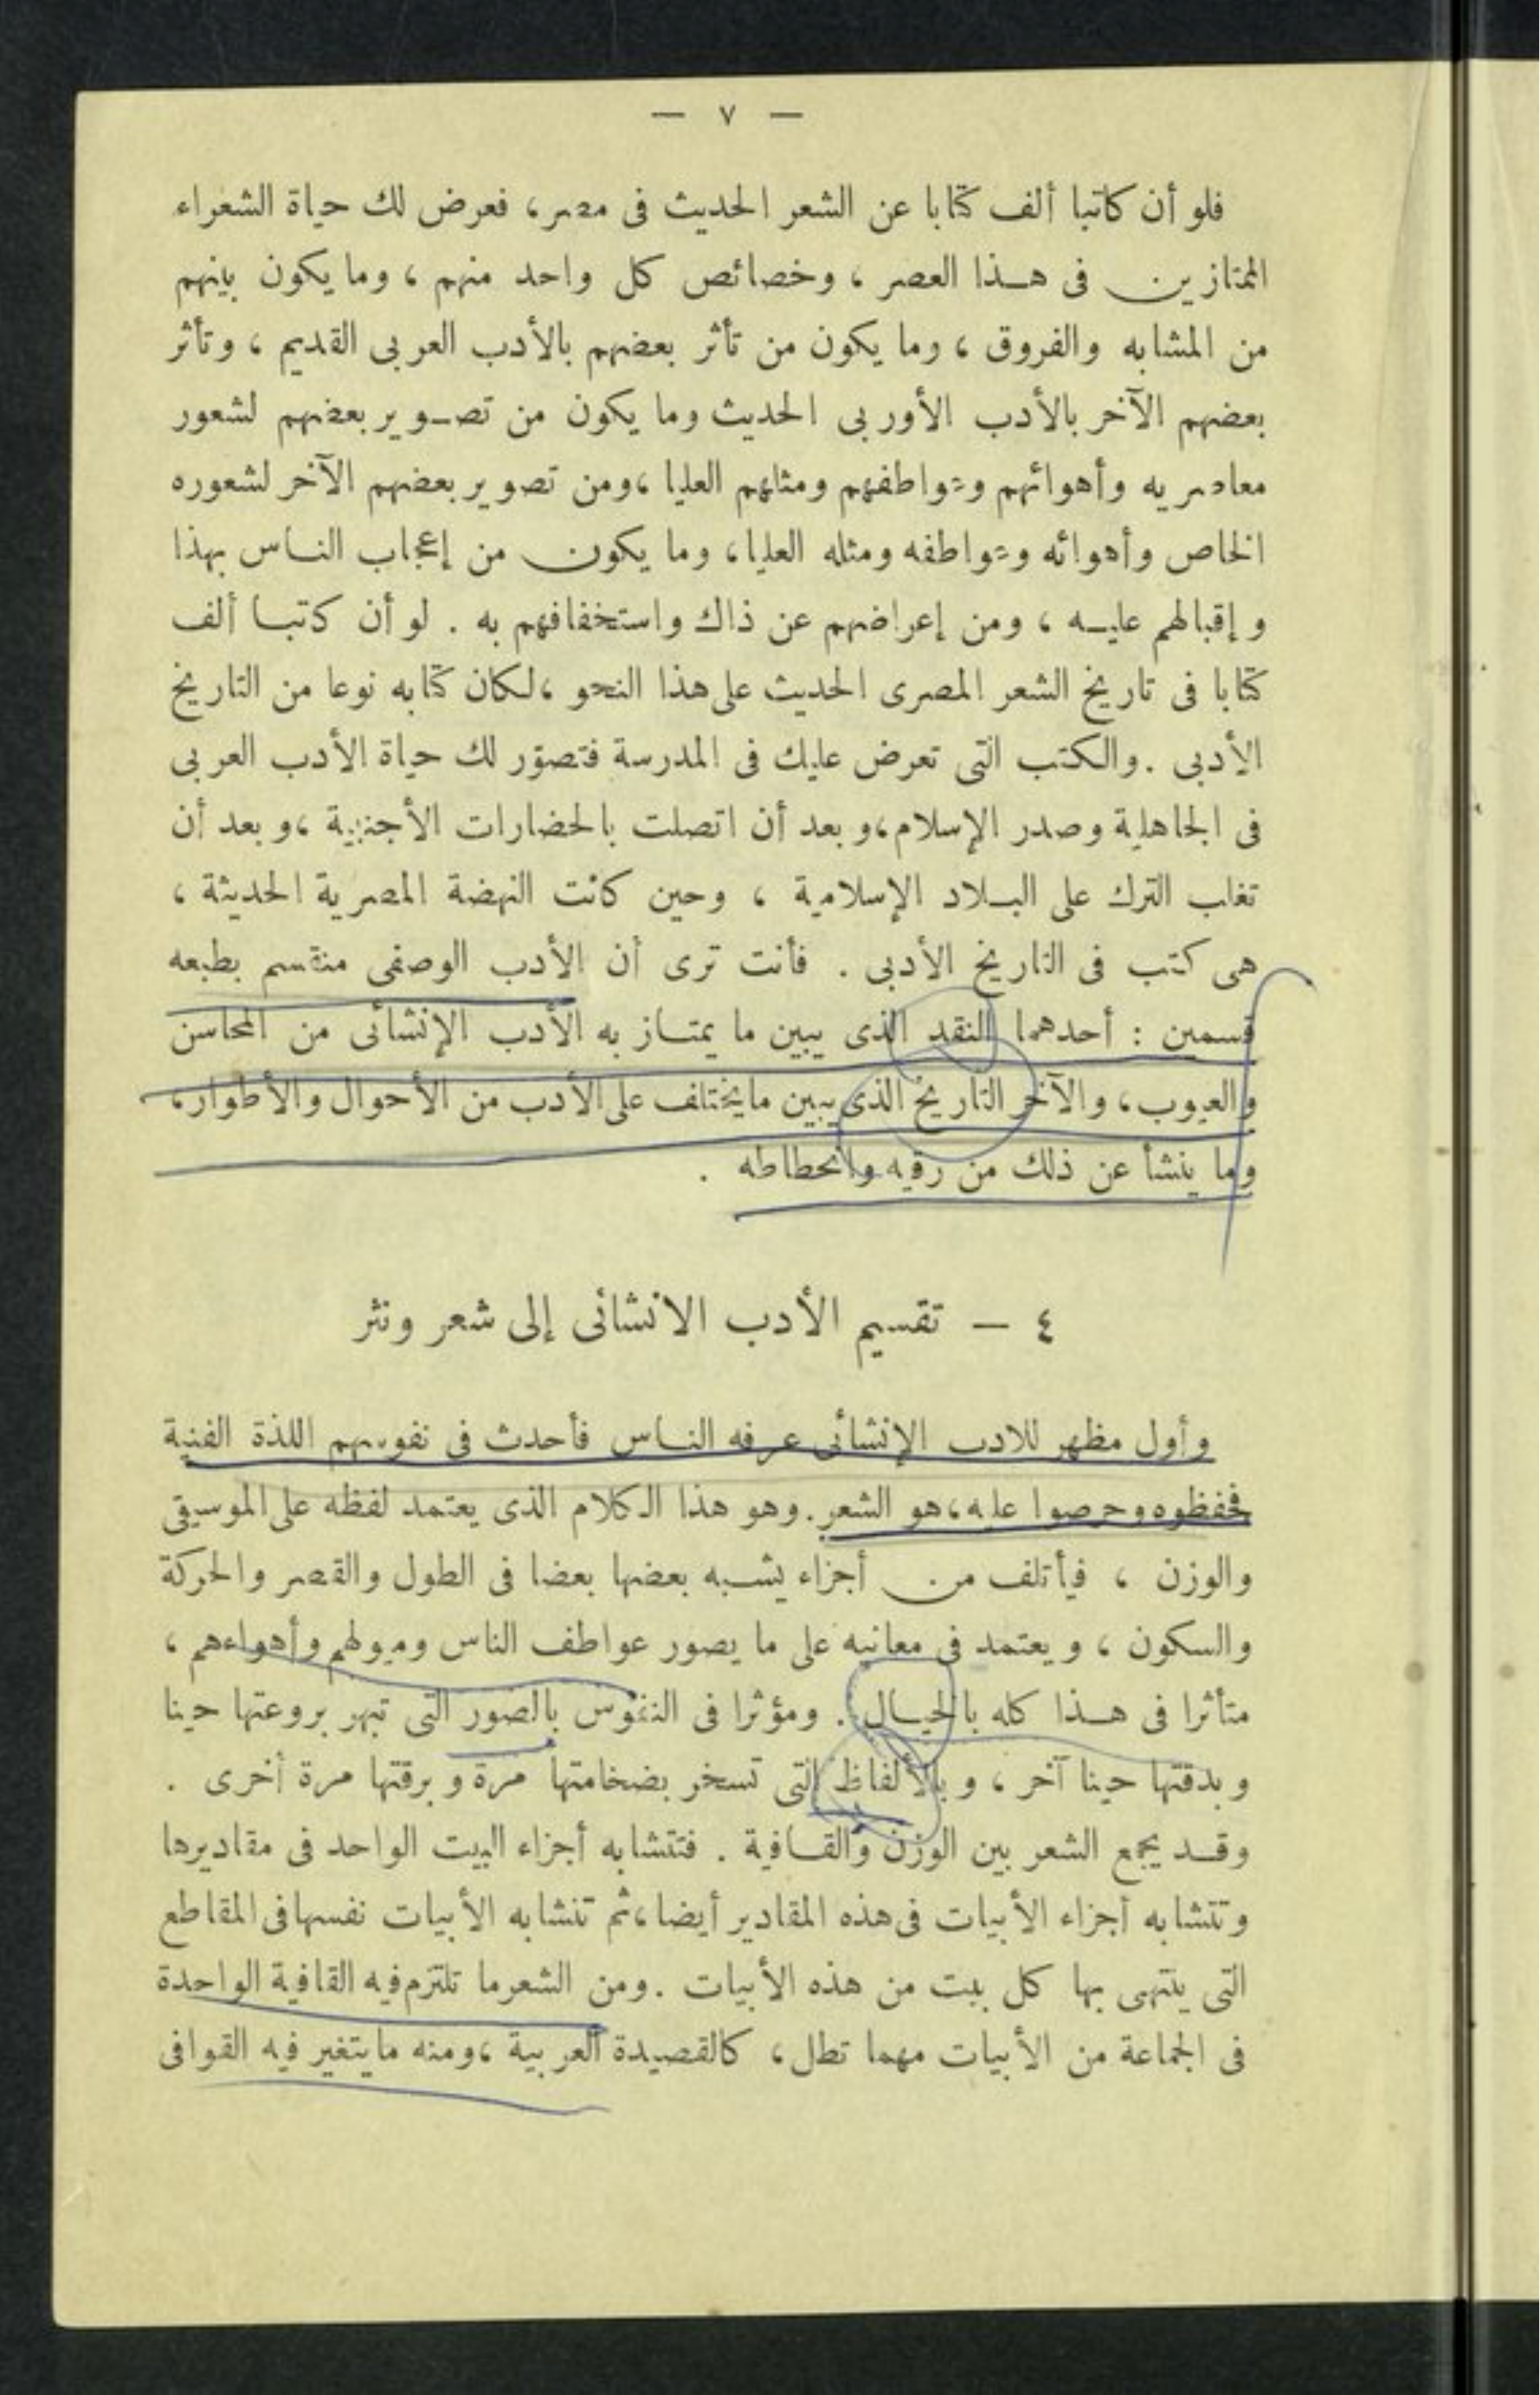 — ٧ —
فلو أن كاتبا ألف كتابا عن الشعر الحديث فى مصر، فعرض لك حياة الشعراء
الممتازين فى هـذا العصر ، وخصائص كل واحد منهم ، وما يكون بينهم
من المشابه والفروق ، وما يكون من تأثر بعضهم بالأدب العربى القديم ، وتأثر
بعضهم الآخر بالأدب الأوربى الحديث وما يكون من تصـوير بعضهم لشعور
معاصريه وأهوائهم وعواطفهم ومثلهم العليا ،ومن تصوير بعضهم الآخر لشعوره
الخاص وأهوائه وعواطفه ومثله العليا، وما يكون من إعجاب النـاس بهذا
وإقبالهم عليـه ، ومن إعراضهم عن ذاك واستخفافهم به . لو أن كتبـا ألف
كتابا فى تاريخ الشعر المصرى الحديث على هذا النحو ،لكان كتابه نوعا من التاريخ
الأدبى .والكتب التى تعرض عليك فى المدرسة فتصوّر لك حياة الأدب العربى
فى الجاهلية وصدر الإسلام،وبعد أن اتصلت بالحضارات الأجنبية ،وبعد أن
تغلب الترك على البـلاد الإسلامية ، وحين كانت النهضة المصرية الحديثة ،
هى كتب فى التاريخ الأدبى . فأنت ترى أن الأدب الوصفى منقسم بطبعه
قسمين : أحدهما النقد الذى يبين ما يمتـاز به الأدب الإنشائى من المحاسن
والعيوب، والآخر التاريخ الذى يبين ما يختلف على الأدب من الأحوال والأطوار،
وما ينشأ عن ذلك من رقيه وانحطاطه .
٤ — تقسيم الأدب الانشائى إلى شعر ونثر
وأول مظهر للادب الإنشائى عرفه النـاس فأحدث فى نفوسهم اللذة الفنية
فحفظوه وحرصوا عليه،هو الشعر.وهو هذا الكلام الذى يعتمد لفظه على الموسيقى
والوزن ، فيأتلف من أجزاء يشـبه بعضها بعضا فى الطول والقصر والحركة
والسكون ، ويعتمد فى معانيه على ما يصور عواطف الناس وميولهم وأهواءهم ،
متأثرا فى هـذا كله بالخيـال . ومؤثرا فى النفوس بالصور التى تبهر بروعتها حينا
وبدقتها حينا آخر ، وبالألفاظ التى تسخر بضخامتها مرة وبرقتها مرة أخرى .
وقـد يجمع الشعر بين الوزن والقـافية . فتتشابه أجزاء البيت الواحد فى مقاديرها
وتتشابه أجزاء الأبيات فى هذه المقادير أيضا،ثم تتشابه الأبيات نفسها فى المقاطع
التى ينتهى بها كل بيت من هذه الأبيات .ومن الشعر ما تلتزم فيه القافية الواحدة
فى الجماعة من الأبيات مهما تطل، كالقصيدة العربية ،ومنه ما يتغير فيه القوافى